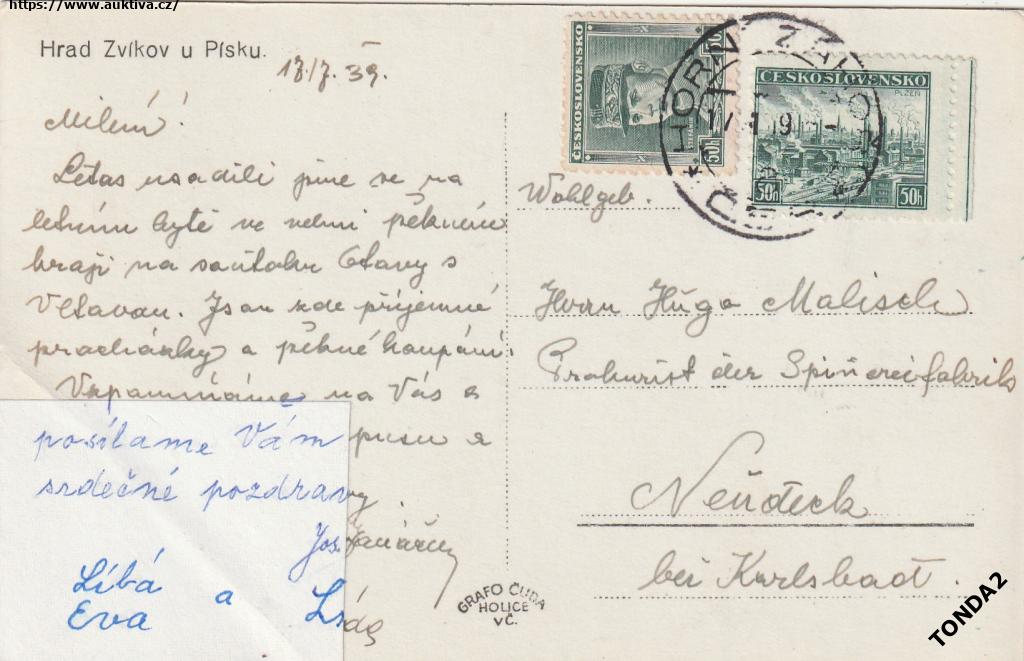 https://www.auktiva.cz/
Hrad Zvíkov u Písku.
17./7. 39.
Milení!
Letos usadili jsme se na
letním bytě ve velmi pěkném
kraji na soutoku Otavy s
Vltavou. Jsou zde příjemné
procházky a pěkné koupání.
Vzpomínáme na Vás a
posíláme Vám
srdečné pozdravy
Jos.
Líbá a
Eva
ČESKOSLOVENSKO
50h
ČESKOSLOVENSKO
PLZEŇ
50h 50h
Wohlgeb.
Herrn Hugo Malisch
Prokurist der Spinnereifabriks
Neudeck
bei Karlsbad.
GRAFO ČUDA
HOLICE
VČ.
TONDA2